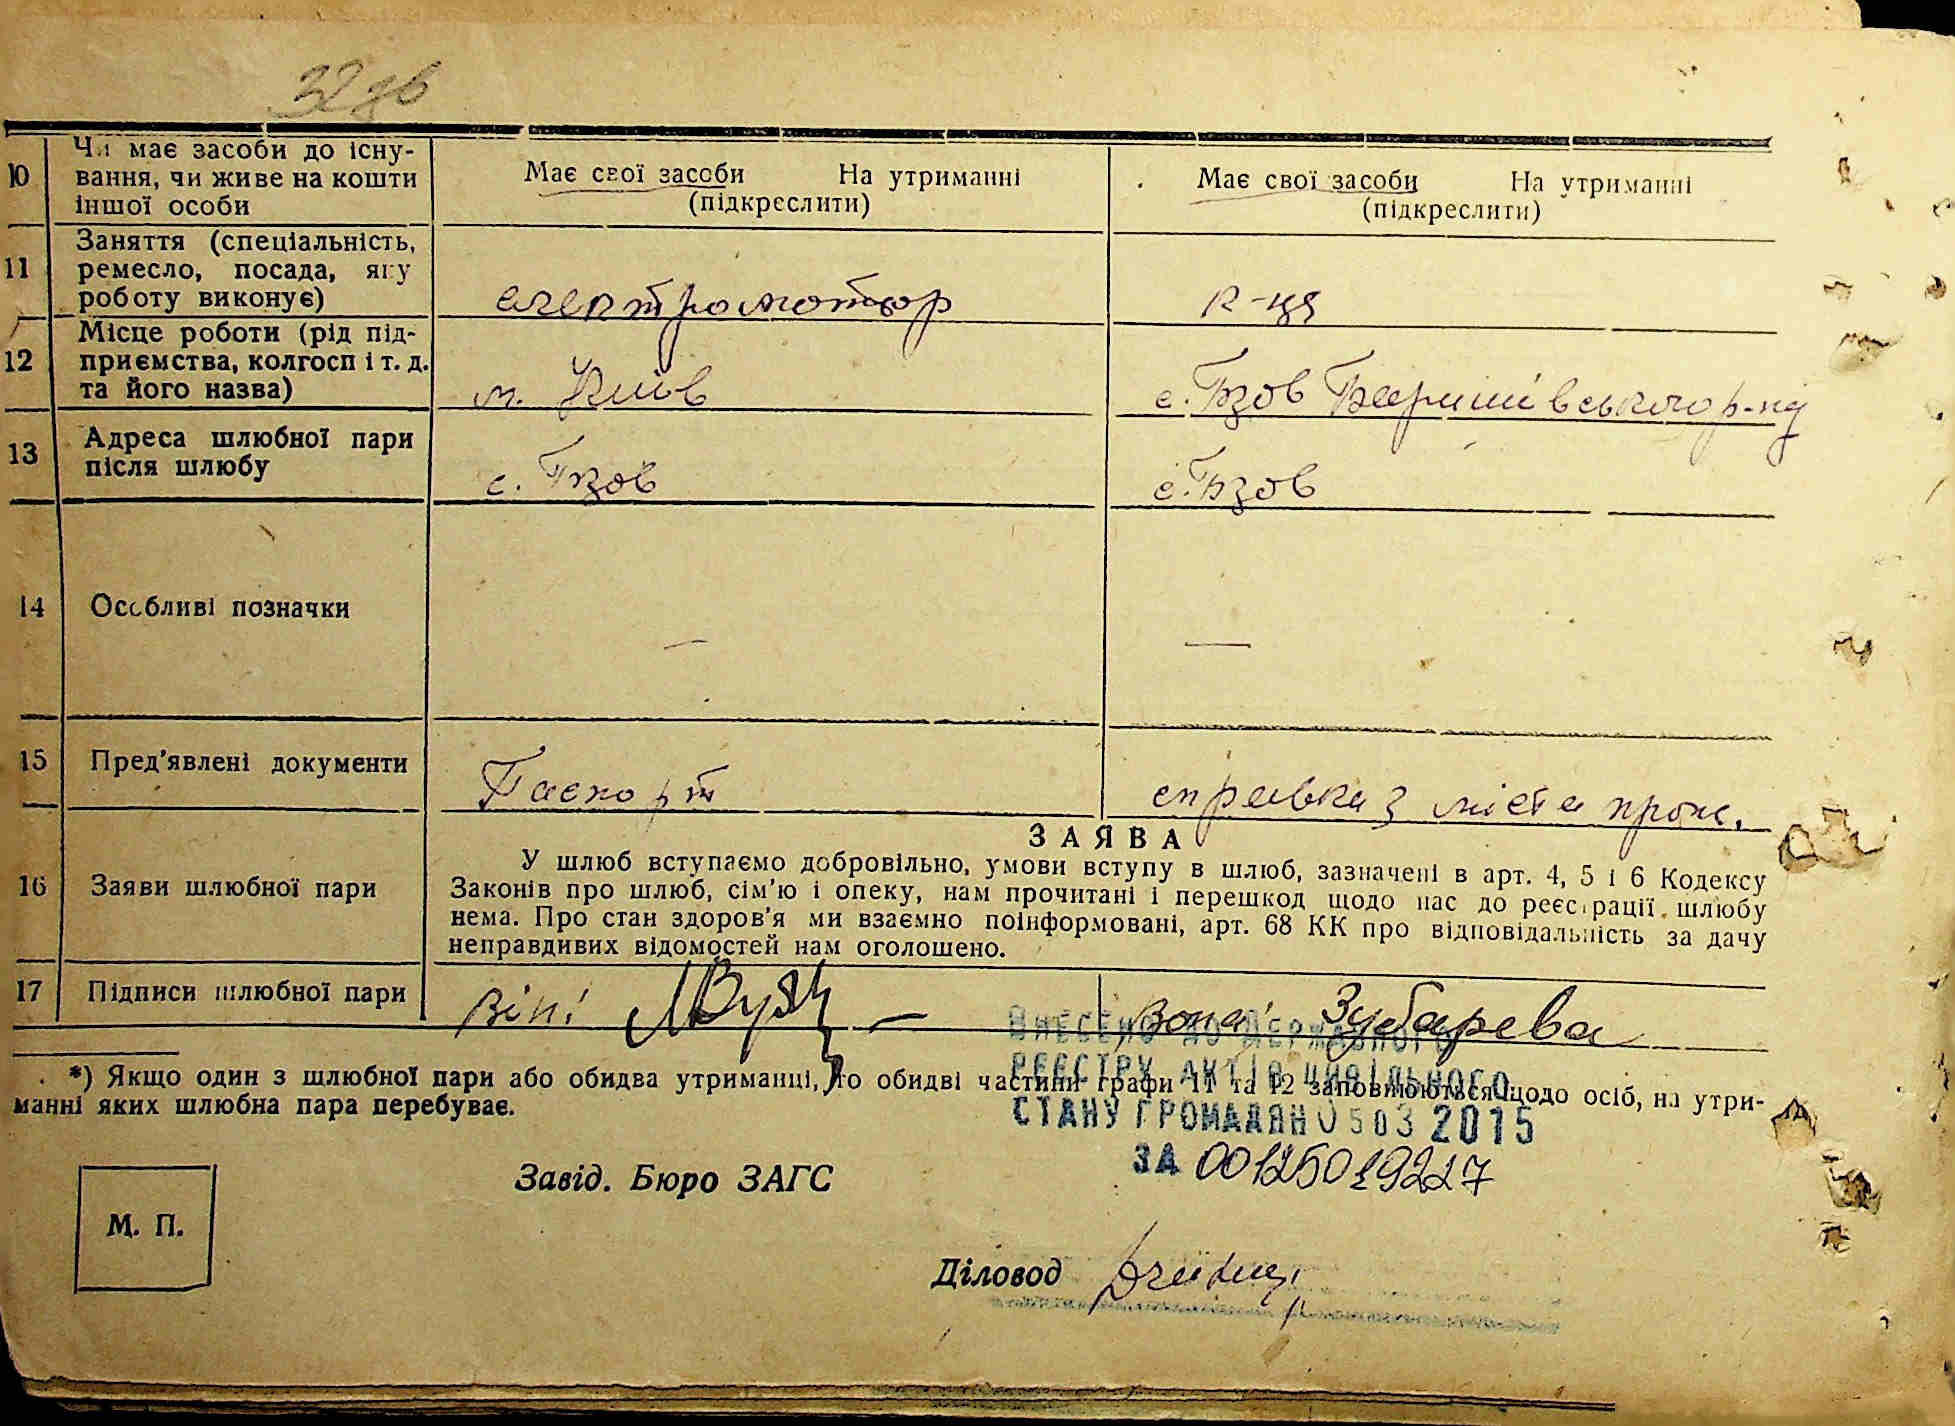 32 зв
10 Чи має засоби до існу-
вання, чи живе на кошти
іншої особи
Має свої засоби На утриманні
(підкреслити)
Має свої засоби На утриманні
(підкреслити)
11 Заняття (спеціальність,
ремесло, посада, яку
роботу виконує)
електромотьор
к-ця
12 Місце роботи (рід під-
приємства, колгосп і т. д.
та його назва)
м. Київ
с. Бзов Баришівського р-ну
13 Адреса шлюбної пари
після шлюбу
с. Бзов
с. Бзов
14 Особливі позначки
—
—
15 Пред'явлені документи
Паспорт
справка з міста прож.
ЗАЯВА
16 Заяви шлюбної пари
У шлюб вступаємо добровільно, умови вступу в шлюб, зазначені в арт. 4, 5 і 6 Кодексу
Законів про шлюб, сім'ю і опеку, нам прочитані і перешкод щодо нас до реєстрації шлюбу
нема. Про стан здоров'я ми взаємно поінформовані, арт. 68 КК про відповідальність за дачу
неправдивих відомостей нам оголошено.
17 Підписи шлюбної пари
Він: Вона: Зубарева
*) Якщо один з шлюбної пари або обидва утриманці, то обидві частини графи 11 та 12 заповнюються щодо осіб, на утри-
манні яких шлюбна пара перебуває.
ВНЕСЕНО ДО ДЕРЖАВНОГО
РЕЄСТРУ АКТІВ ЦИВІЛЬНОГО
СТАНУ ГРОМАДЯН 0503 2015
ЗА 00125019227
Завід. Бюро ЗАГС
М. П.
Діловод